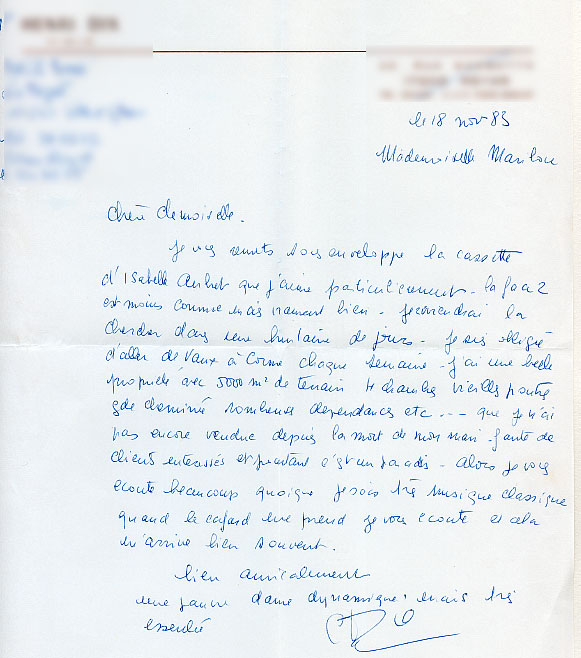 le 18 nov 83
Mademoiselle Marilou
Chère demoiselle.
Je vous remets sous enveloppe la cassette
d'Isabelle Aubret que j'aime particulièrement - la face 2
est moins connue mais vraiment bien - Je reviendrai la
chercher dans une huitaine de jours. Je suis obligée
d'aller de Vaux à Corme chaque semaine - J'ai une belle
propriété avec 5000 m² de terrain 4 chambres vieilles poutres
gde cheminée nombreuses dépendances etc --- que je n'ai
pas encore vendue depuis la mort de mon mari - faute de
clients intéressés et pourtant c'est un paradis - Alors je vous
écoute beaucoup quoique je sois très musique classique
quand le cafard me prend je vous écoute et cela
m'arrive bien souvent.
bien amicalement
une jeune dame dynamique mais très
esseulée